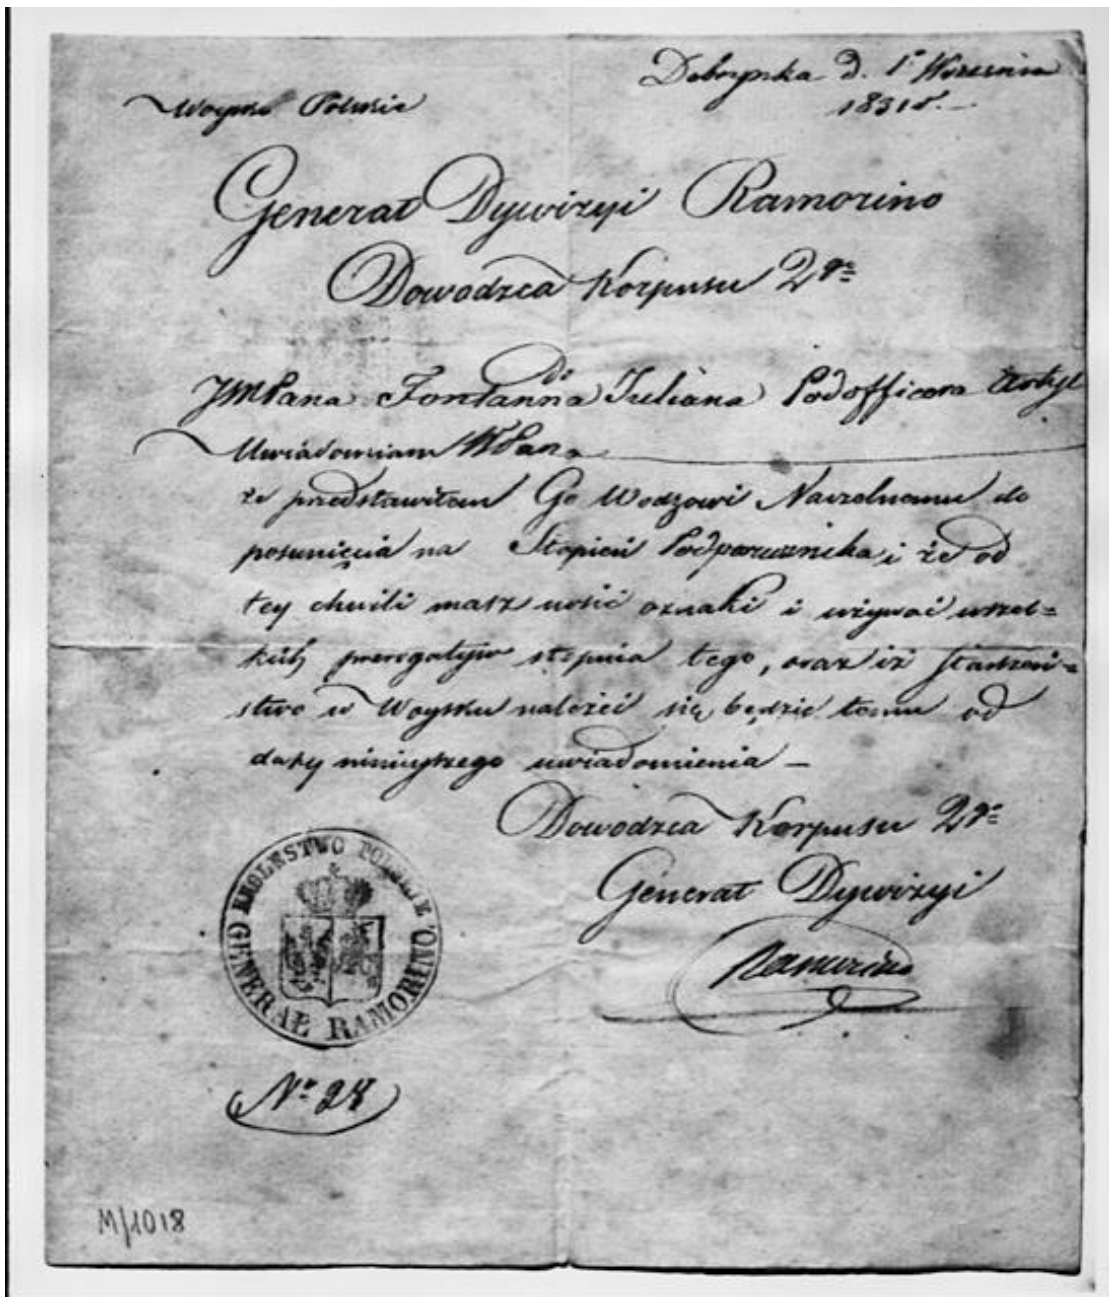 Dobrynka d. 1° Września
1831 r.
Woysko Polskie
Generał Dywizyi Ramorino
Dowodzca Korpusu 2go
do
JMPana Fontanna Juliana Podofficera Artyl
Uwiadomiam WPana
że przedstawiłem Go Wodzowi Naczelnemu do
posunięcia na Stopień Podporucznika i że od
tey chwili masz nosić oznaki i używać wszel=
kich prerogatyw stopnia tego, oraz iż starszeń=
stwo w Woysku należeć się będzie temu od
daty ninieyszego uwiadomienia —
Dowodzca Korpusu 2go
Generał Dywizyi
Ramorino
KROLESTWO POLSKIE
GENERAŁ RAMORINO.
No 28
M/1018